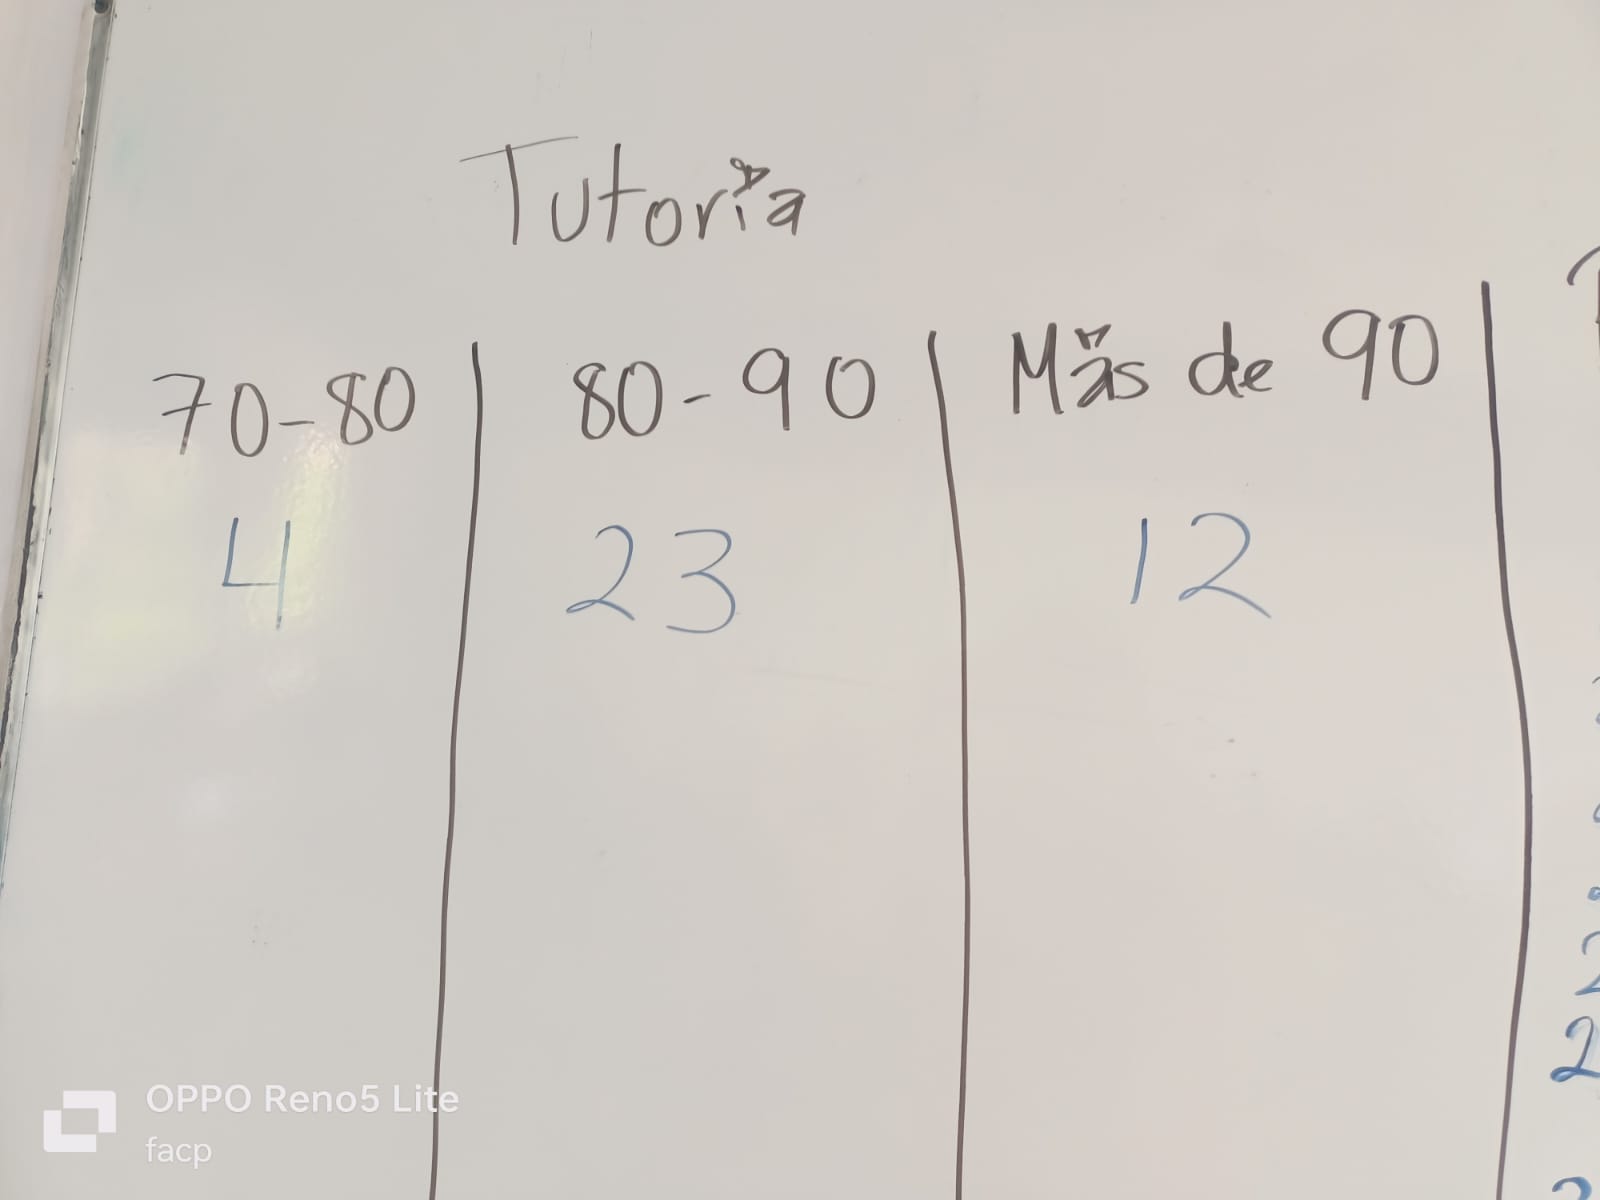 Tutoría
70-80 80-90 Más de 90
4 23 12
2
2
OPPO Reno5 Lite
facp